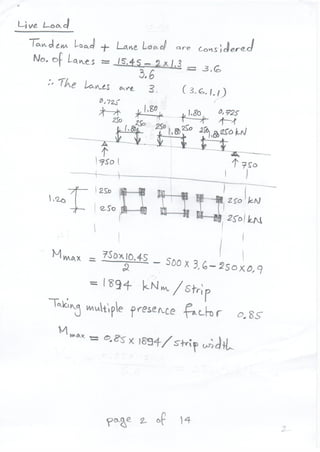 Live Load
Tandem Load + Lane Load are considered
No. of Lanes = 15.45 - 2x1.3 / 3.6 = 3.6
∴ The Lanes are 3. (3.6.1.1)
0.725 1.80 1.80 0.725
250 250 250 250 250 250 kN
1.80 1.80 1.80
750 750
1.20
250 250 kN
250 250 kN
Mmax = 750x10.45 / 2 - 500 x 3.6 - 250 x 0.9
= 1894 kNm / Strip
Taking multiple presence factor 0.85
Mmax = 0.85 x 1894 / strip width
page 2 of 14
2